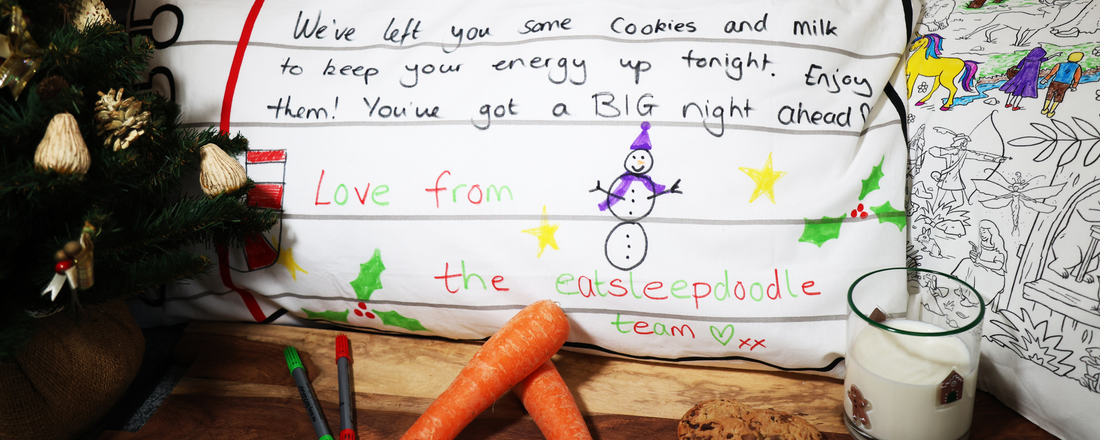 We've left you some Cookies and milk
to keep your energy up tonight. Enjoy
them! You've got a BIG night ahead!
Love from
the eatsleepdoodle
team ♡xx